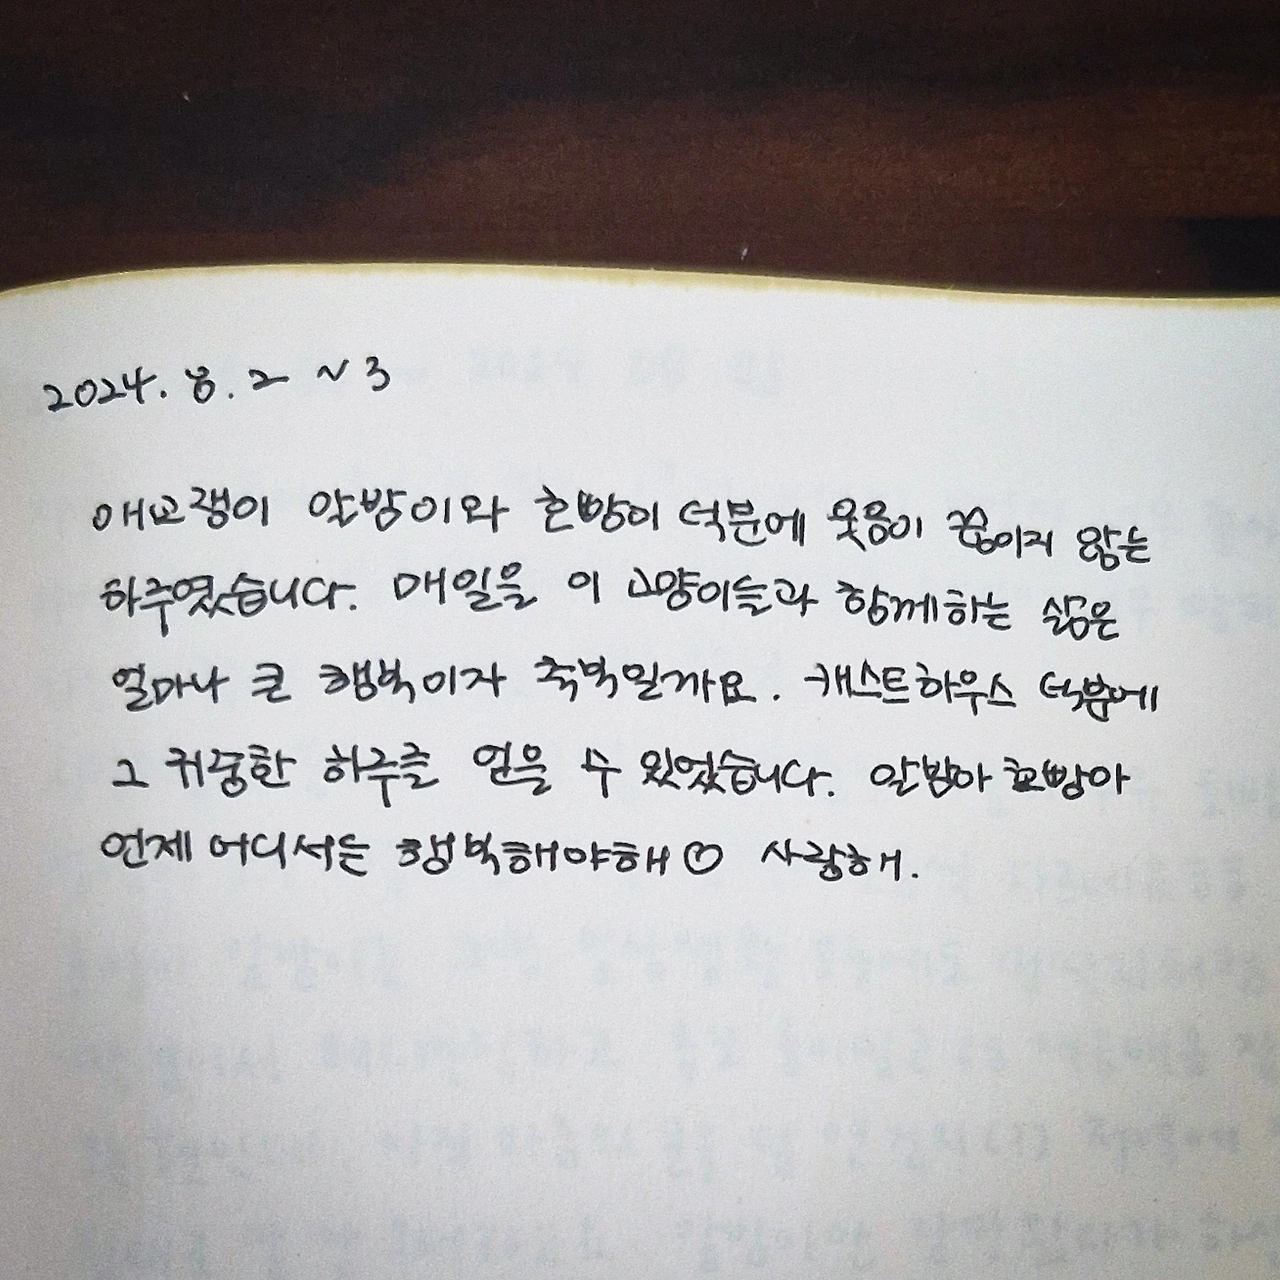 2024. 8. 2 ~ 3
애교쟁이 안방이와 호빵이 덕분에 웃음이 끊이지 않는
하루였습니다. 매일을 이 고양이들과 함께하는 삶은
얼마나 큰 행복이자 축복일까요. 캐스트하우스 덕분에
그 귀중한 하루를 얻을 수 있었습니다. 안방아 호빵아
언제 어디서든 행복해야해♡ 사랑해.